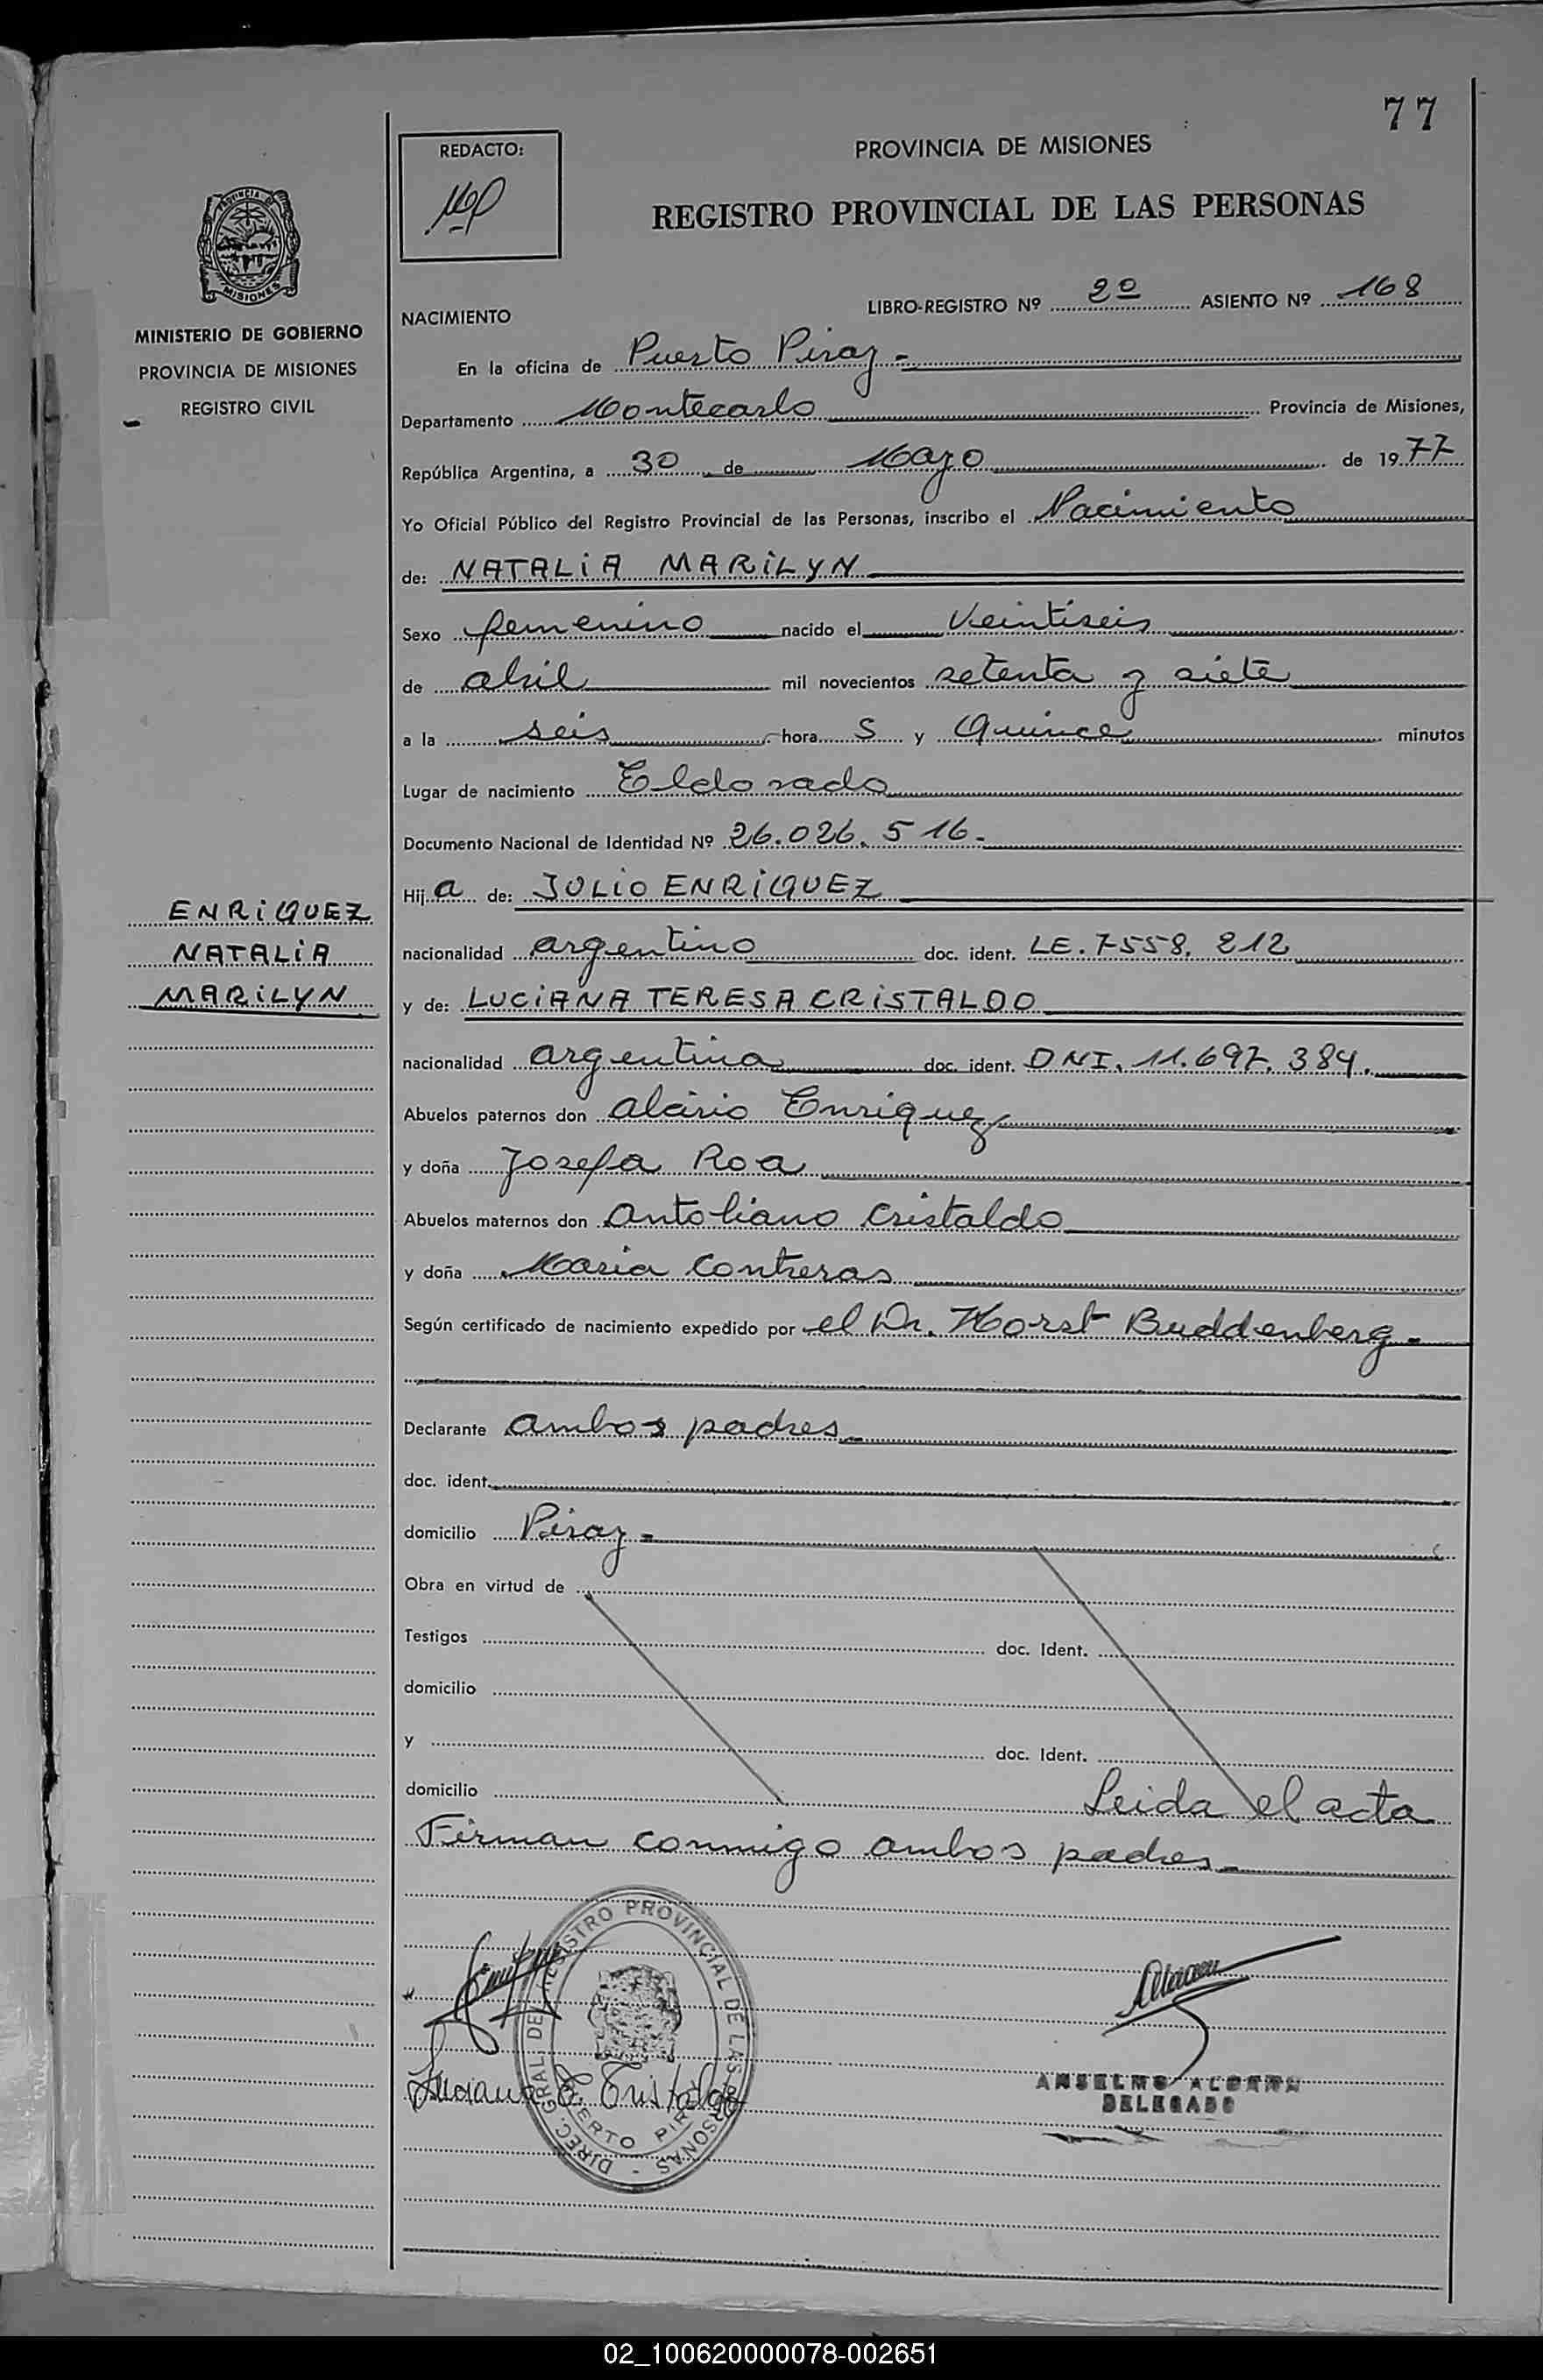 77
REDACTO:
PROVINCIA DE MISIONES
REGISTRO PROVINCIAL DE LAS PERSONAS
MISIONES
MINISTERIO DE GOBIERNO
PROVINCIA DE MISIONES
REGISTRO CIVIL
LIBRO-REGISTRO Nº 2º ASIENTO Nº 168
NACIMIENTO
En la oficina de Puerto Piray -
Departamento Montecarlo Provincia de Misiones,
República Argentina, a 30 de Mayo de 1977
Yo Oficial Público del Registro Provincial de las Personas, inscribo el Nacimiento
de: NATALIA MARILYN
Sexo femenino nacido el Veintiseis
de abril mil novecientos setenta y siete
a la seis hora s y Quince minutos
Lugar de nacimiento Eldorado
Documento Nacional de Identidad Nº 26.026.516.-
Hij a de: JULIO ENRIQUEZ
ENRIQUEZ
NATALIA
MARILYN
nacionalidad argentino doc. ident. LE. 7558.212
y de: LUCIANA TERESA CRISTALDO
nacionalidad argentina doc. ident. DNI. 11.697.384.
Abuelos paternos don Enriquez
y doña Josefa Roa
Abuelos maternos don Antoliano Cristaldo
y doña Maria Contreras
Según certificado de nacimiento expedido por el Dr. Horst Buddenberg -
Declarante ambos padres
doc. ident.
domicilio Piray -
Obra en virtud de
Testigos doc. Ident.
domicilio
y doc. Ident.
domicilio Leida el acta
Firman conmigo ambos padres
DIREC. GRAL. DEL REGISTRO PROVINCIAL DE LAS PERSONAS -
PUERTO PIRAY
Luciana T. Cristaldo
ANSELMO
DELEGADO
02_100620000078-002651